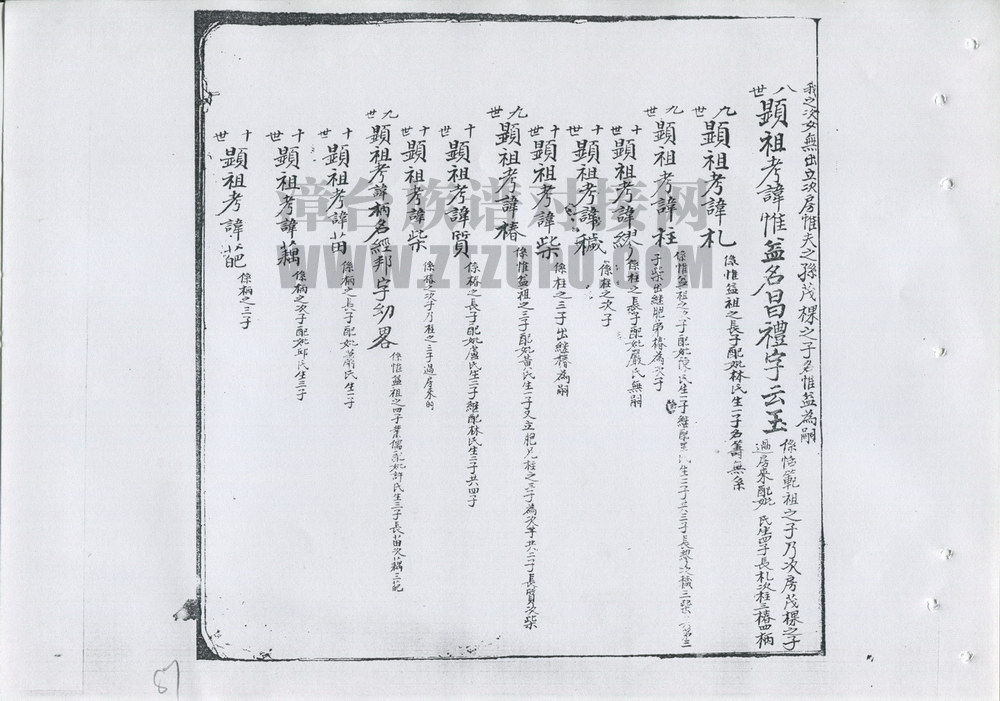 我之次女無出立次房惟夫之孫茂棵之子名惟益為嗣
八世
顯祖考諱惟益名昌禮字云玉
係恪範祖之子乃次房茂棵之子
過房來配妣 氏生四子長札次柱三椿四柄
九世
顯祖考諱札
係惟益祖之長子配妣林氏生一子名籌無系
九世
顯祖考諱柱
係惟益祖之次子配妣陳氏生二子繼配 氏生三子共三子長 次穢三柴
子柴出繼胞弟椿為次子
十世
顯祖考諱繆
係柱之長子配妣嚴氏無嗣
十世
顯祖考諱穢
係柱之次子
十世
顯祖考諱柴
係柱之三子出繼椿為嗣
九世
顯祖考諱椿
係惟益祖之三子配妣黃氏生一子又立胞兄柱之三子為次子共二子長質次柴
十世
顯祖考諱質
係椿之長子配妣盧氏生二子繼配林氏生二子共四子
十世
顯祖考諱柴
係椿之次子乃柱之三子過房來的
九世
顯祖考諱柄名經邦字幼畧
係惟益祖之四子業儒配妣許氏生三子長苗次藕三葩
十世
顯祖考諱苗
係柄之長子配妣蕭氏生二子
十世
顯祖考諱藕
係柄之次子配妣邱氏生三子
十世
顯祖考諱葩
係柄之三子
章台族谱对接网
WWW.ZTZUPU.COM